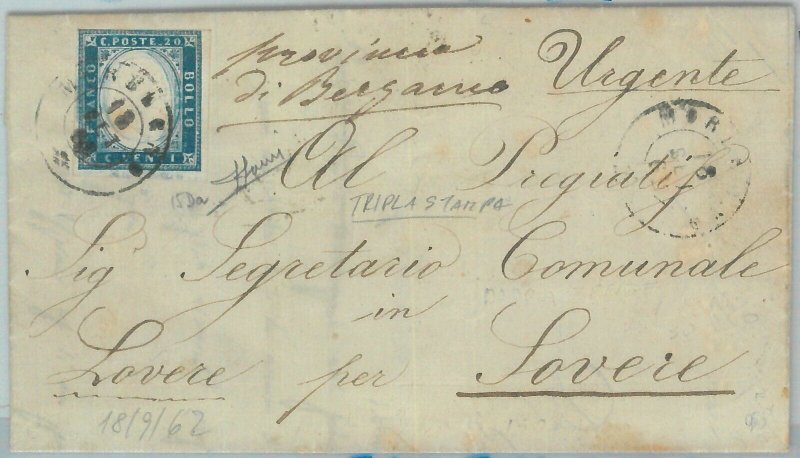 C. POSTE. 20
FRANCO
BOLLO
CENTI
18
provincia
di Bergamo
Urgente
Al Pregiat
TRIPLA STAMPA
15Da
Sig. Segretario Comunale
in
Lovere per Sovere
18/9/62